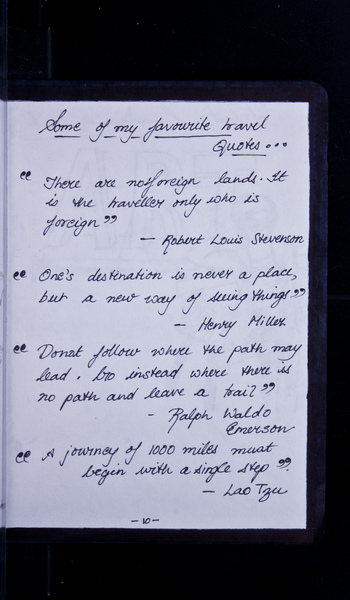 Some of my favourite travel
Quotes...
"There are no foreign lands. It
is the traveller only who is
foreign"
- Robert Louis Stevenson
"One's destination is never a place,
but a new way of seeing things"
- Henry Miller
"Donot follow where the path may
lead. Go instead where there is
no path and leave a trail"
- Ralph Waldo
Emerson
"A journey of 1000 miles must
begin with a single step".
- Lao Tzu
-10-